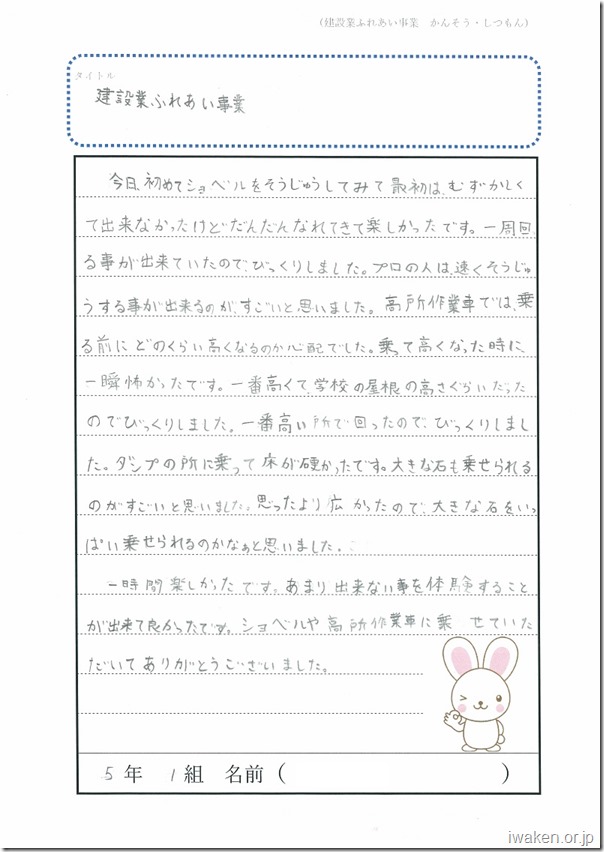 （建設業ふれあい事業　かんそう・しつもん）
タイトル
建設業ふれあい事業
今日、初めてショベルをそうじゅうしてみて最初は、むずかしく
て出来なかったけどだんだんなれてきて楽しかったです。一周回
る事が出来ていたので、びっくりしました。プロの人は、速くそうじゅ
うする事が出来るのが、すごいと思いました。高所作業車では、乗
る前にどのくらい高くなるのか心配でした。乗って高くなった時に、
一瞬怖かったです。一番高くて、学校の屋根の高さぐらいだった
のでびっくりしました。一番高い所で回ったので、びっくりしまし
た。ダンプの所に乗って床が硬かったです。大きな石も乗せられる
のがすごいと思いました。思ったより広かったので、大きな石をいっ
ぱい乗せられるのかなぁと思いました。
一時間楽しかったです。あまり出来ない事を体験すること
が出来て良かったです。ショベルや高所作業車に乗せていた
だいてありがとうございました。
5年　1組　名前（　　　　　　　）
iwaken.or.jp